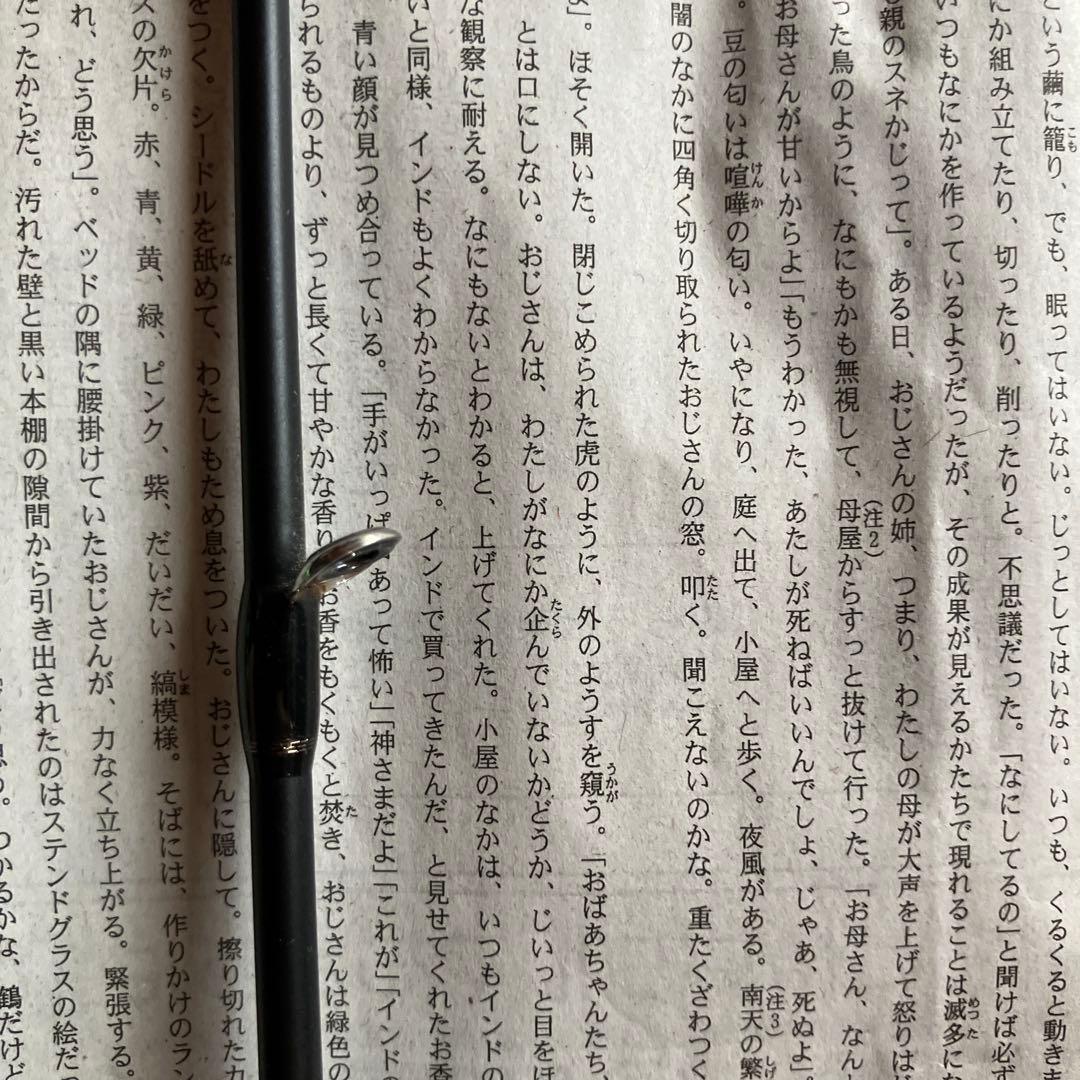 という繭に籠り、でも、眠ってはいない。じっとしてはいない。いつも、くるくると動きま
にか組み立てたり、切ったり、削ったりと。不思議だった。「なにしてるの」と聞けば必ず
いつもなにかを作っているようだったが、その成果が見えるかたちで現れることは滅多にな
も親のスネかじって」。ある日、おじさんの姉、つまり、わたしの母が大声を上げて怒りはじ
った鳥のように、なにもかも無視して、母屋からすっと抜けて行った。「お母さん、なん
お母さんが甘いからよ」「もうわかった、あたしが死ねばいいんでしょ、じゃあ、死ぬよ」。
。豆の匂いは喧嘩の匂い。いやになり、庭へ出て、小屋へと歩く。夜風がある。南天の繁
闇のなかに四角く切り取られたおじさんの窓。叩く。聞こえないのかな。重たくざわつく
よ」。ほそく開いた。閉じこめられた虎のように、外のようすを窺う。「おばあちゃんたち、
とは口にしない。おじさんは、わたしがなにか企んでいないかどうか、じいっと目をほ
な観察に耐える。なにもないとわかると、上げてくれた。小屋のなかは、いつもインドの
いと同様、インドもよくわからなかった。インドで買ってきたんだ、と見せてくれたお香
青い顔が見つめ合っている。「手がいっぱ あって怖い」「神さまだよ」「これが」「インドの
られるものより、ずっと長くて甘やかな香り お香をもくもくと焚き、おじさんは緑色の
をつく。シードルを舐めて、わたしもため息をついた。おじさんに隠して。擦り切れたカ
スの欠片。赤、青、黄、緑、ピンク、紫、だいだい、縞模様。そばには、作りかけのラン
れ、どう思う」。ベッドの隅に腰掛けていたおじさんが、力なく立ち上がる。緊張する。
たったからだ。汚れた壁と黒い本棚の隙間から引き出されたのはステンドグラスの絵だっ
わかるかな、鶴だけど